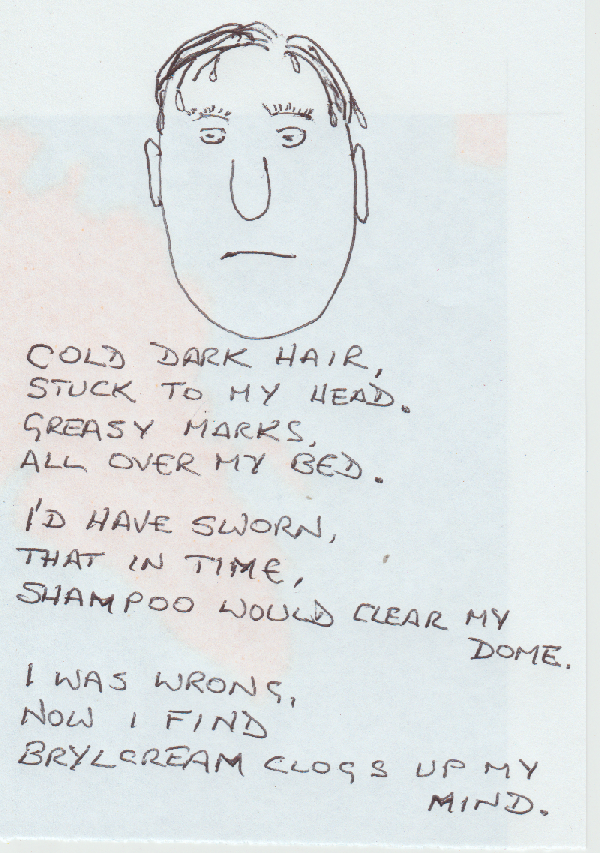 COLD DARK HAIR,
STUCK TO MY HEAD.
GREASY MARKS,
ALL OVER MY BED.
I'D HAVE SWORN,
THAT IN TIME,
SHAMPOO WOULD CLEAR MY
DOME.
I WAS WRONG,
NOW I FIND
BRYLCREAM CLOGS UP MY
MIND.